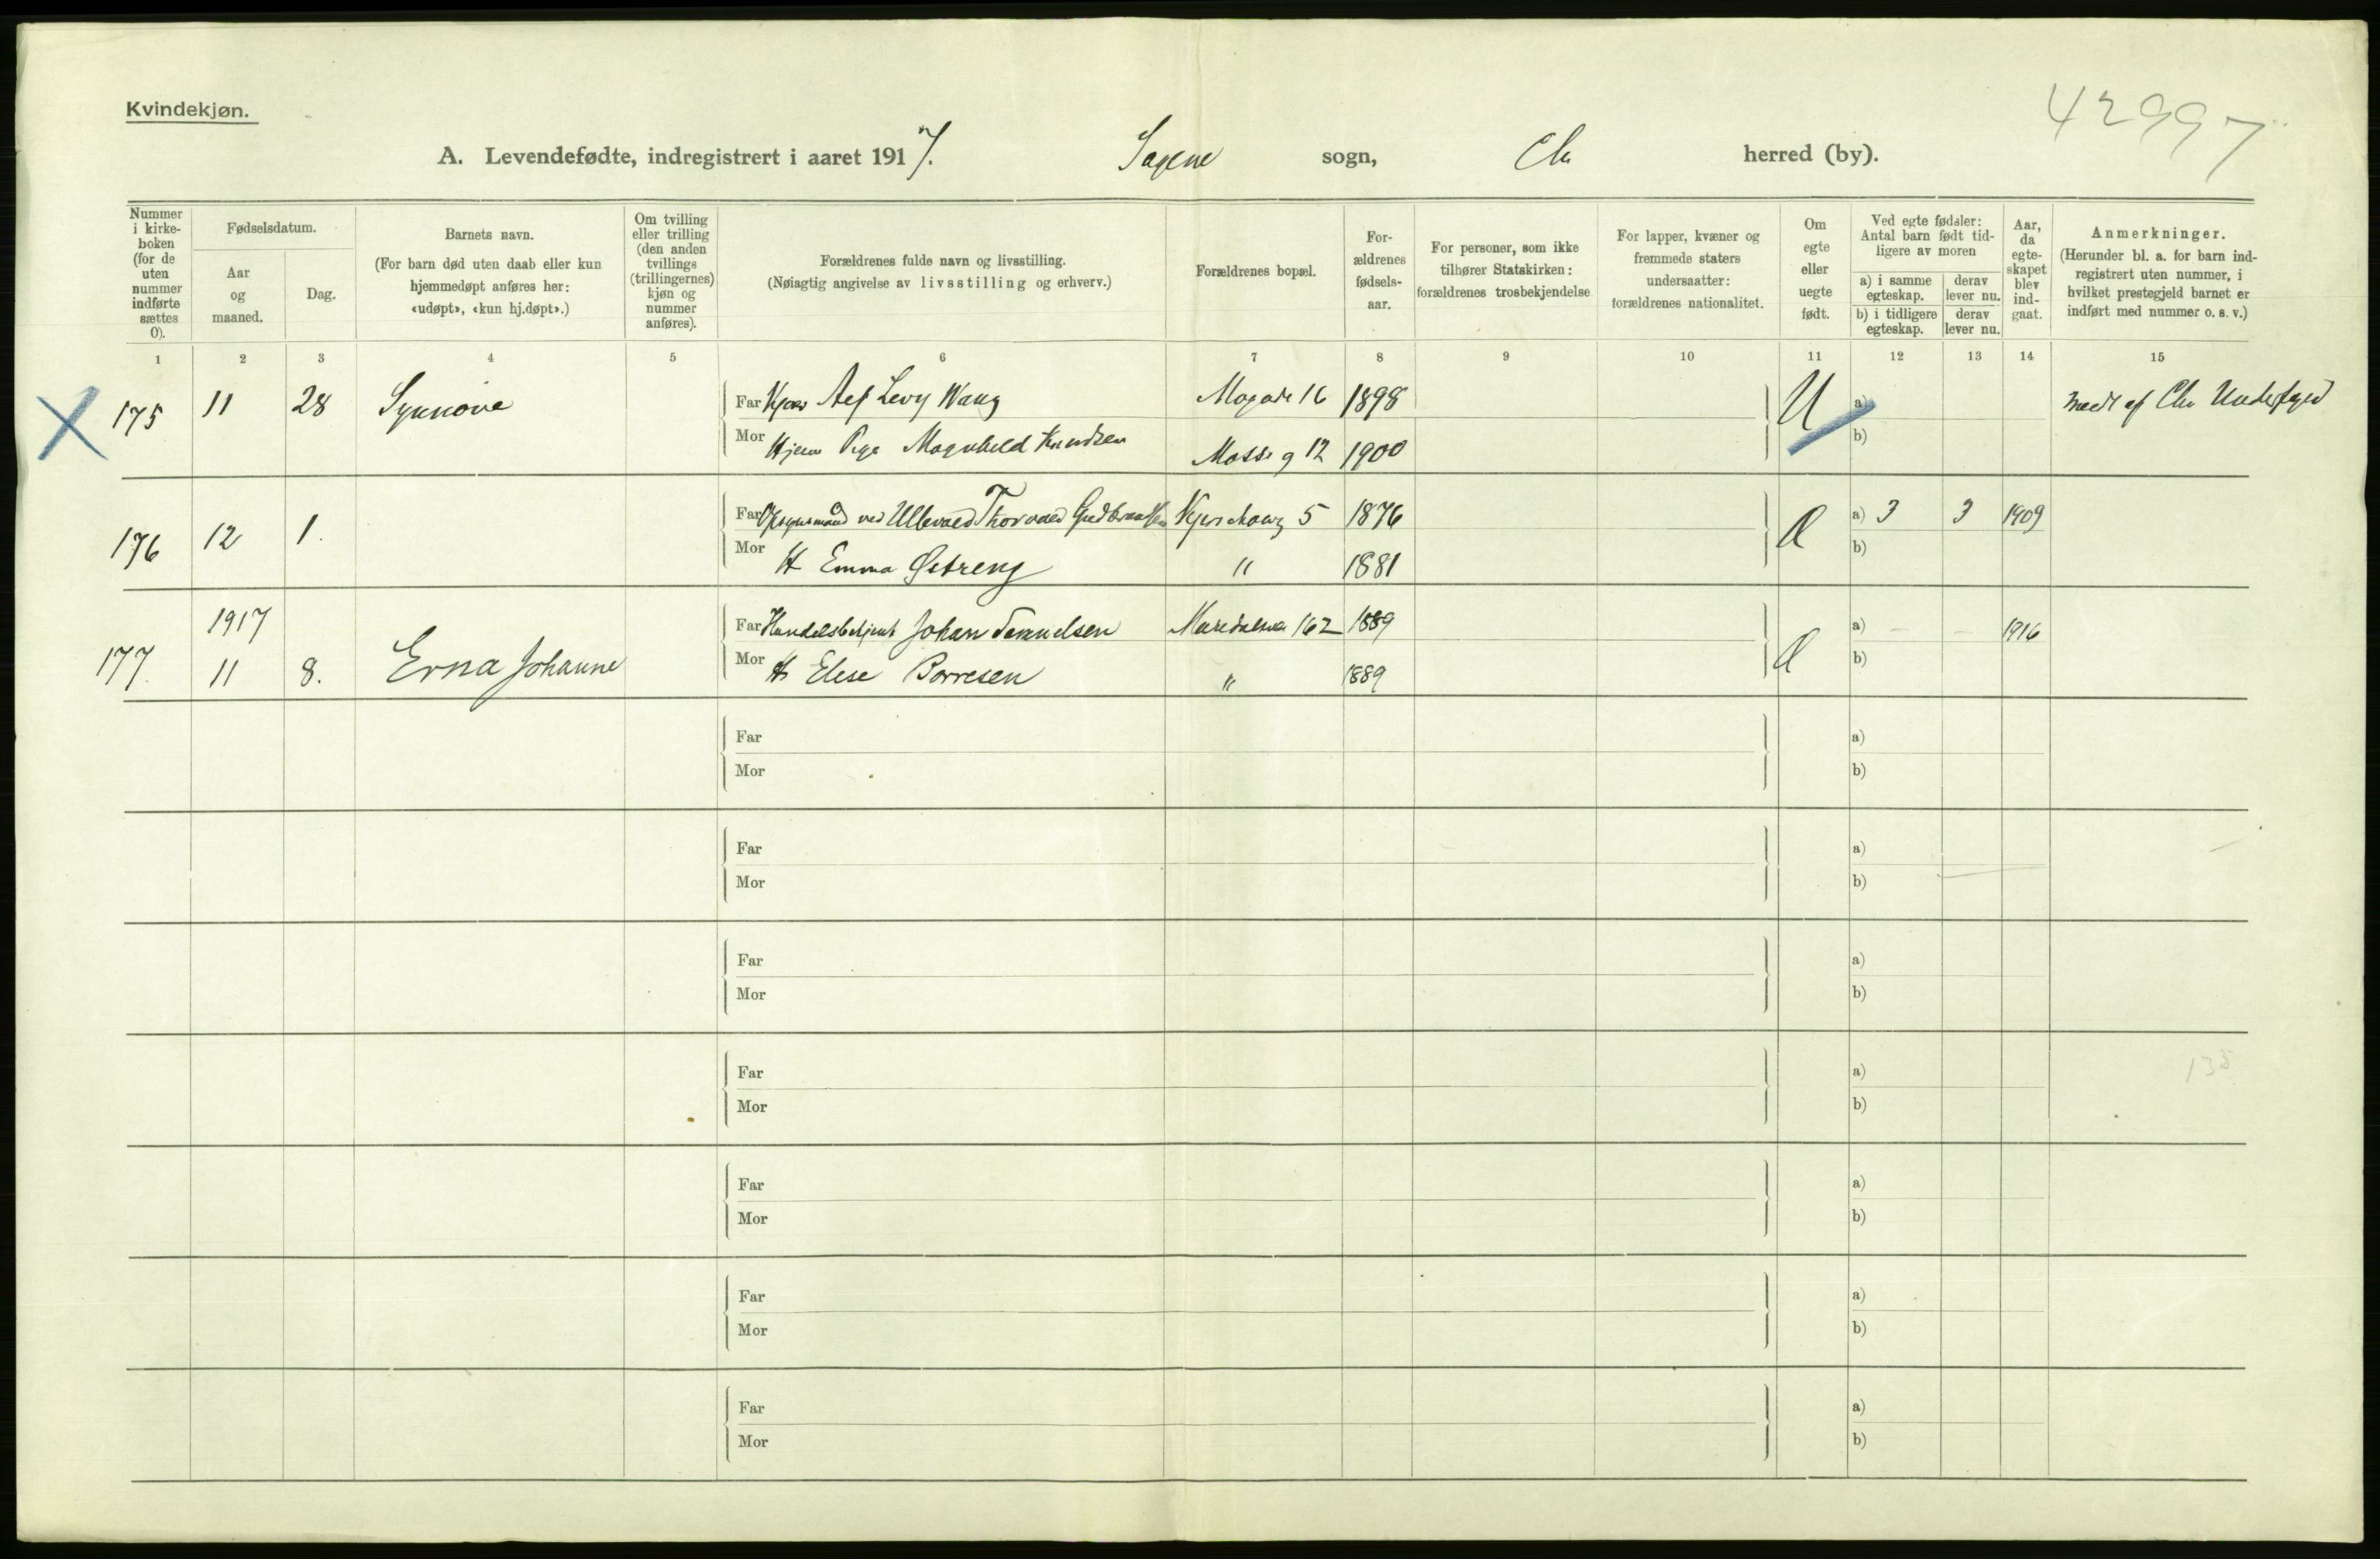 Kvindekjøn.
42997
A. Levendefødte, indregistrert i aaret 1917. Sagene sogn, Chr herred (by).
Nummer i kirke-boken (for de uten nummer indførte sættes 0).
Fødselsdatum.
Aar og maaned.
Dag.
Barnets navn.
(For barn død uten daab eller kun hjemmedøpt anføres her: «udøpt», «kun hj.døpt».)
Om tvilling eller trilling (den anden tvillings (trillingernes) kjøn og nummer anføres).
Forældrenes fulde navn og livsstilling.
(Nøiagtig angivelse av livsstilling og erhverv.)
Forældrenes bopæl.
For-ældrenes fødsels-aar.
For personer, som ikke tilhører Statskirken: forældrenes trosbekjendelse
For lapper, kvæner og fremmede staters undersaatter: forældrenes nationalitet.
Om egte eller uegte født.
Ved egte fødsler: Antal barn født tid-ligere av moren
a) i samme egteskap.
derav lever nu.
b) i tidligere egteskap.
derav lever nu.
Aar, da egte-skapet blev ind-gaat.
Anmerkninger.
(Herunder bl. a. for barn ind-registrert uten nummer, i hvilket prestegjeld barnet er indført med nummer o. s. v.)
1 2 3 4 5 6 7 8 9 10 11 12 13 14 15
175 11 28 Synnøve Far Levy Wang 16 1898 U a)
Mor Pige Magnhild Knudsen Mosse g 12 1900 b)
176 12 1. Far ved Ullevaal Thorvald Gudbrandsen 5 1876 a) 3 3 1909
Mor H Emma Østreng " 1881 b)
1917 Far Handelsbetjent Johan Samuelsen 162 1889 a) – – 1916
177. 11 8. Erna Johanne Mor H Elise Borresen " 1889 b)
Far a)
Mor b)
Far a)
Mor b)
Far a)
Mor b)
Far a)
Mor b)
135
Far a)
Mor b)
Far a)
Mor b)
Far a)
Mor b)